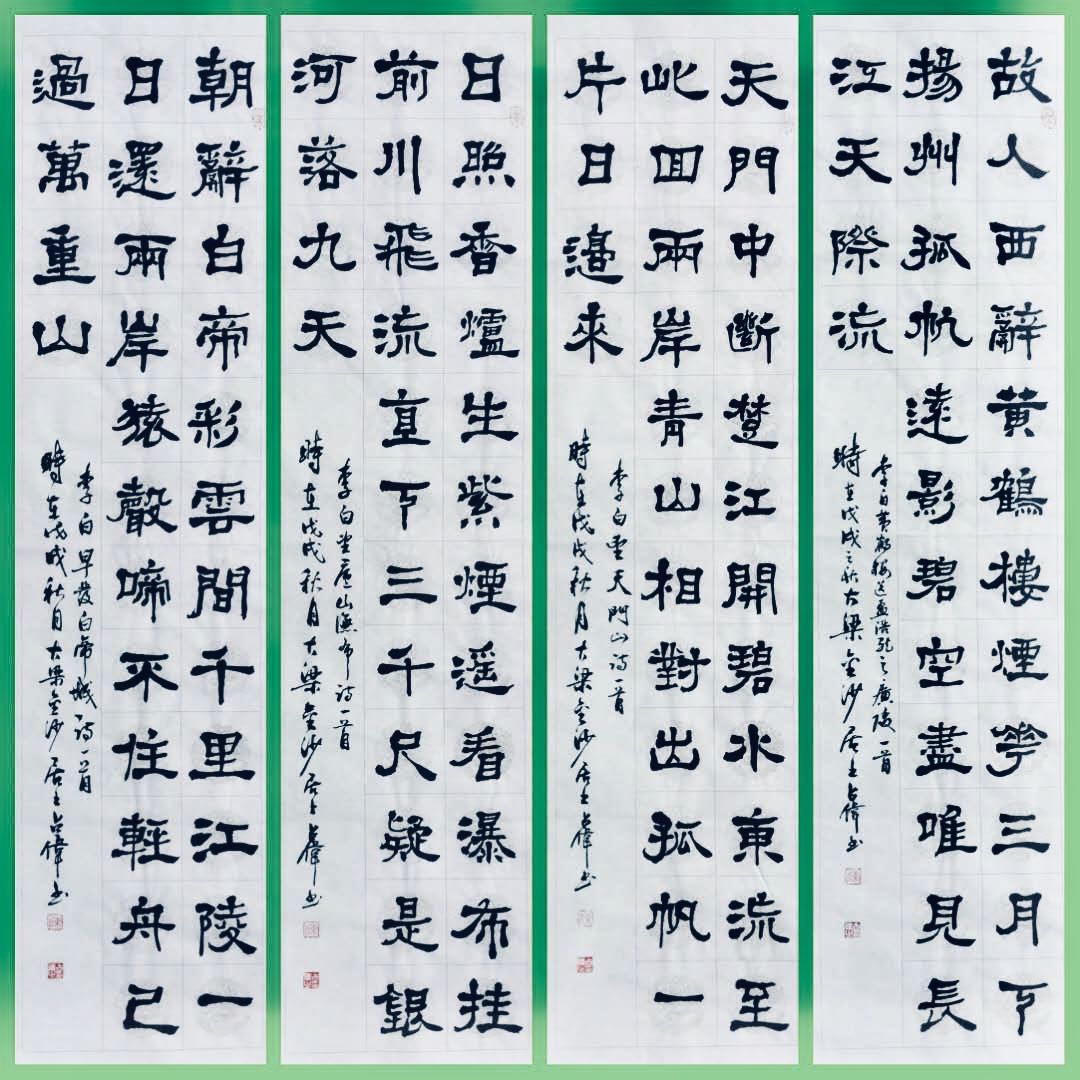 故人西辭黃鶴樓煙華三月下
揚州孤帆遠影碧空盡唯見長
江天際流
李白黄鹤楼送孟浩然之廣陵一首
時在戊戌之秋大梁金沙居士占偉书
天門中斷楚江開碧水東流至
此回兩岸青山相對出孤帆一
片日邊來
李白望天門山诗一首
時在戊戌秋月大梁金沙居士占偉书
日照香爐生紫煙遥看瀑布挂
前川飛流直下三千尺疑是銀
河落九天
李白望廬山瀑布诗一首
時在戊戌秋月大梁金沙居士占偉书
朝辭白帝彩雲間千里江陵一
日還兩岸猿聲啼不住輕舟已
過萬重山
李白早發白帝城诗一首
時在戊戌秋月大梁金沙居士占偉书